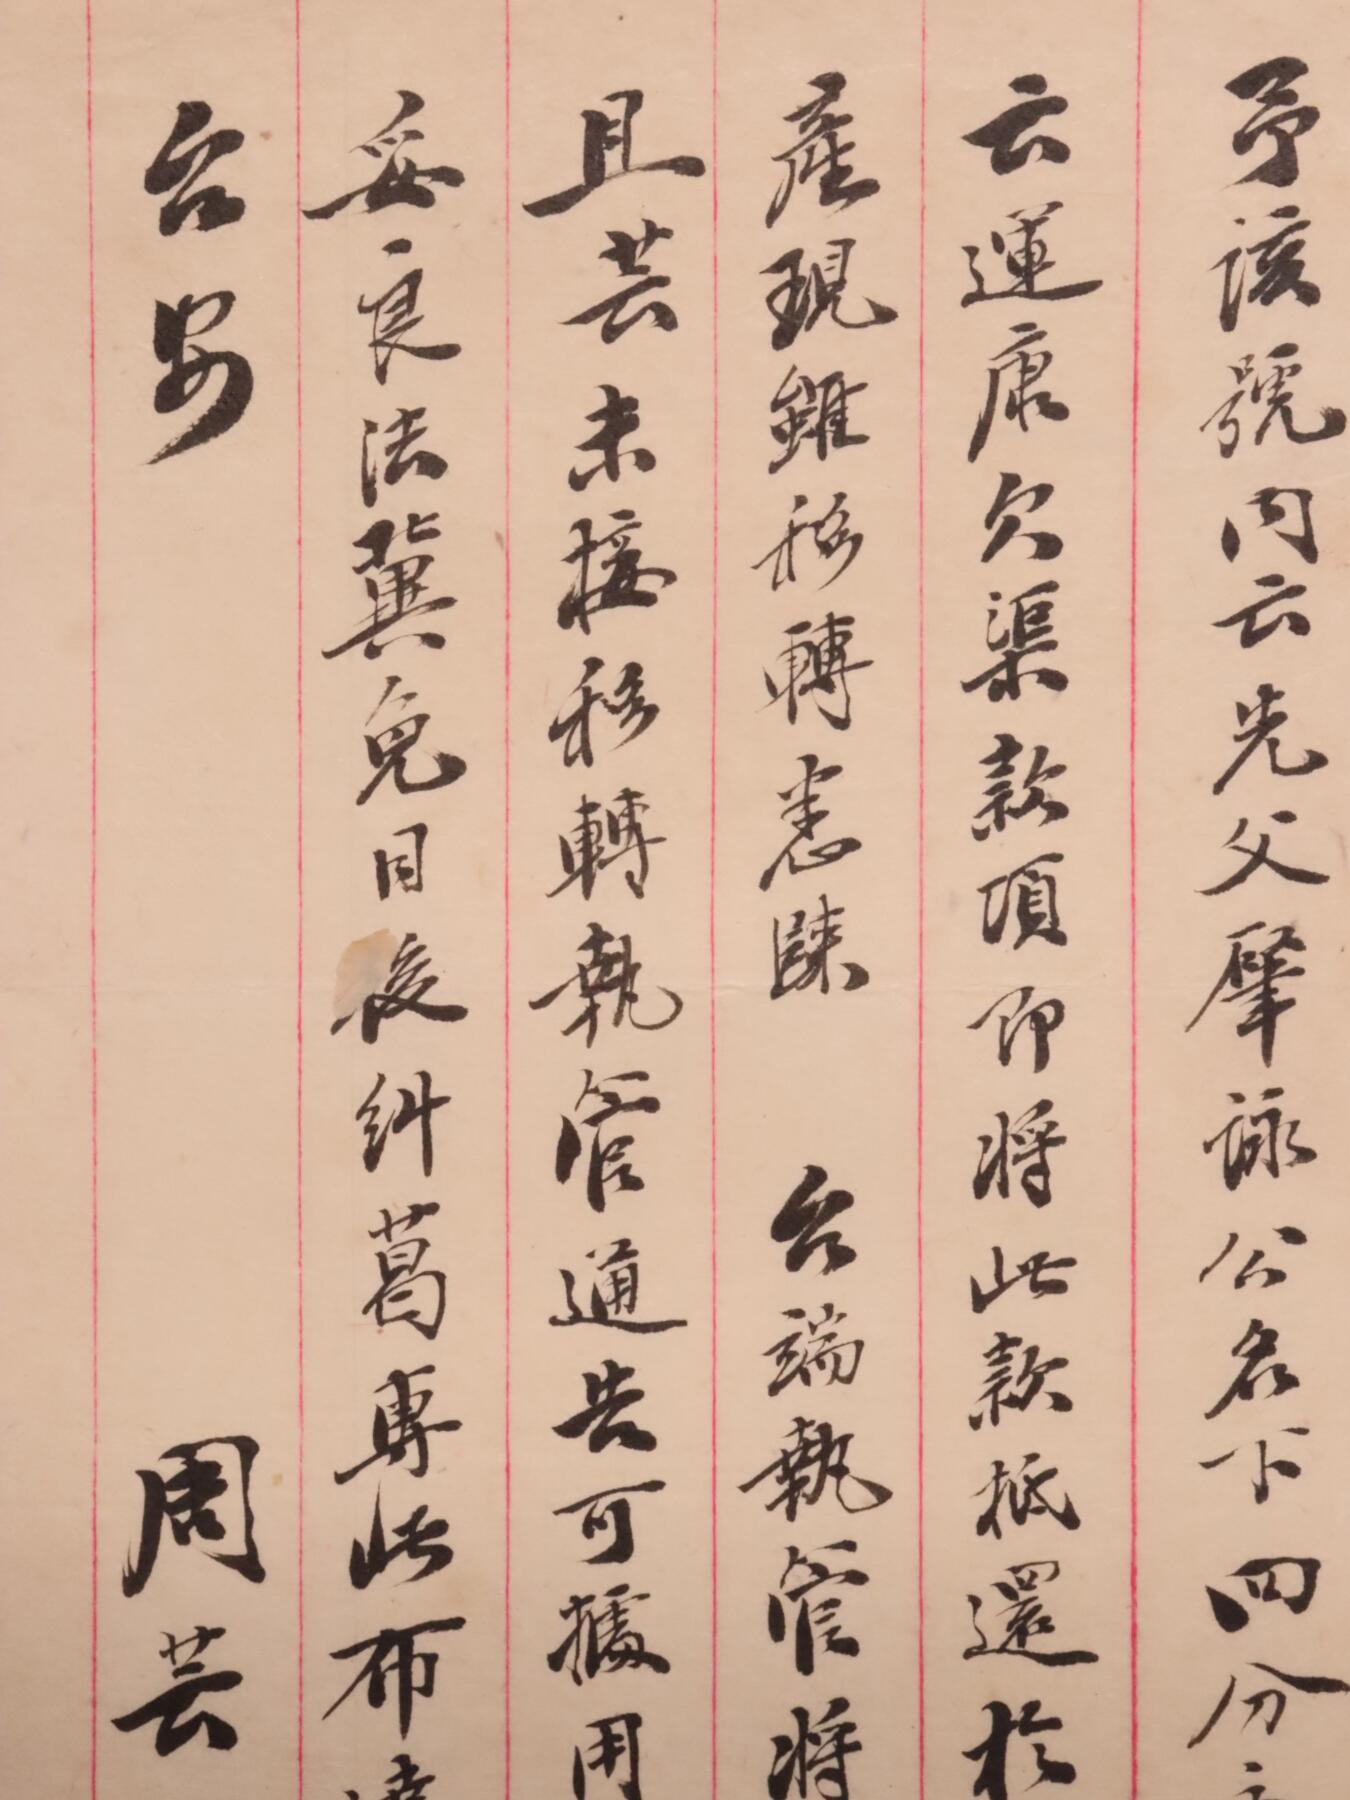 予該號內云先父肇詠公名下四分之
云運康欠渠款項即將此款抵還於
產現雖移轉悉歸 台端執管將
且芸未接移轉執管通告可據用
妥良法冀免日後糾葛專此布
台安 周芸